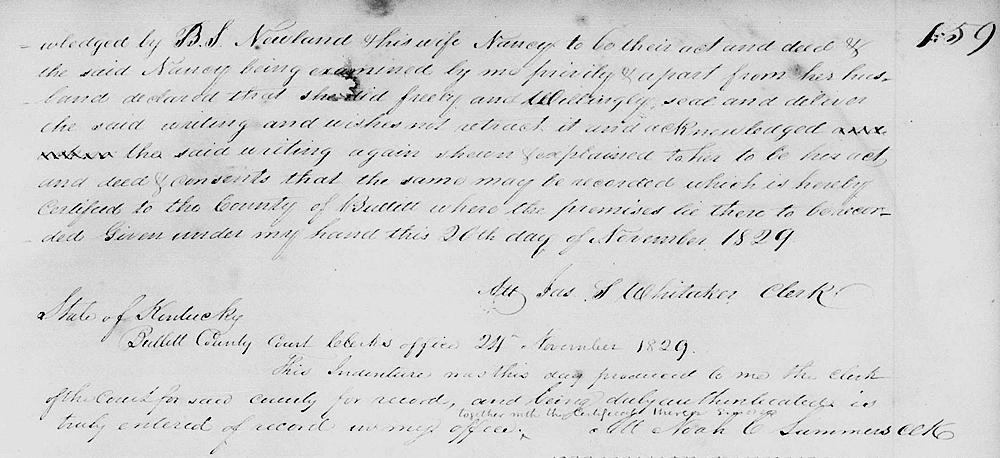 159
-wledged by B. S. Newland & his wife Nancy to be their act and deed &
the said Nancy being examined by me privily & apart from her hus-
-band declared that she did freely and Willingly, seal and deliver
the said writing and wishes not retract it and acknowledged
the said writing again shewn & explained to her to be her act
and deed & consents that the same may be recorded which is hereby
Certified to the County of Bullitt where the premises lie there to be recor-
-ded Given under my hand this 20th day of November 1829
Att Jas. S Whitaker Clerk
State of Kentucky
Bullitt County Court Clerks office 24th November 1829.
This Indenture was this day produced to me the clerk
of the Court for said county for record, and being duly authenticated is
together with the certificate thereon
truly entered of record in my office. Att Noah C Summers CCK